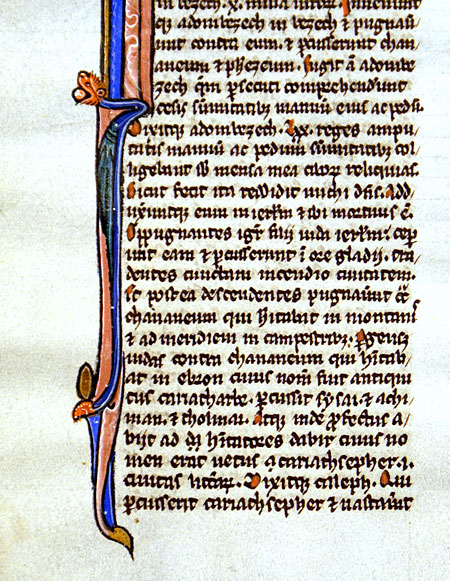 in bezech. x. milia uiror̄. Inuener̄t
q; adonibezech in bezech & pugnau
erunt contra eum. & ꝑcusserunt chan
aneum & pherezeum. fugit a͞ adonibe
zech q̄m ꝑsecuti comprehenderunt
cesis sūmitatib; manuū eius ac pedū.
Dixitq; adonibezech. Lxx. reges ampu
tatis manuū ac pedum sūmitatib; col
ligebant sb̄ mensa mea cibor̄ reliquias.
Sicut feci ita reddidit michi d͞s. Add
uxer̄tq; eum in ierl̄m & ibi mortuus ē.
Oppugnantes igr̄ filii iuda ierl̄m. ceper
unt eam & ꝑcusserunt ī ore gladii. tra
dentes cunctam incendio ciuitatem.
Et postea descendentes pugnauer̄t ᵭt̄
chananeum qui h̄itabat in montanis
& ad meridiem in campestrib;. Pergensq;
iudas contra chananeum qui h̄itab
at in ebron cuius nom̄ fuit antiqui
tus cariatharbe. ꝑcussit sysai. & achi
man. & tholmai. Atq; inde ꝓfectus a
bijt ad h̄itatores dabir cuius no
men erat uetus cariathsepher. i.
ciuitas litterar̄. Dixitq; caleph. Qui
ꝑcusserit cariathsepher & uastauerit